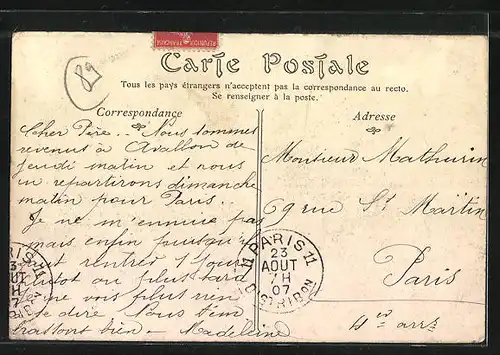 REPUBLIQUE FRANÇAISE
89
Carte Postale
Tous les pays étrangers n'acceptent pas la correspondance au recto.
Se renseigner à la poste.
Correspondance
Cher Père.. Nous sommes
revenus à Avallon de
jeudi matin et nous
en repartirons dimanche
matin pour Paris..
Je ne m'ennuie pas
mais enfin puisqu'il
faut rentrer 1 jour
plutot ou plus tard
je ne vois plus rien
te dire. Nous t'em
brassons bien - Madeleine
Adresse
Monsieur Mathurin
69 rue St Martin
Paris
4er arrt
PARIS 11
23
AOUT
7H
07
DISTRIBON